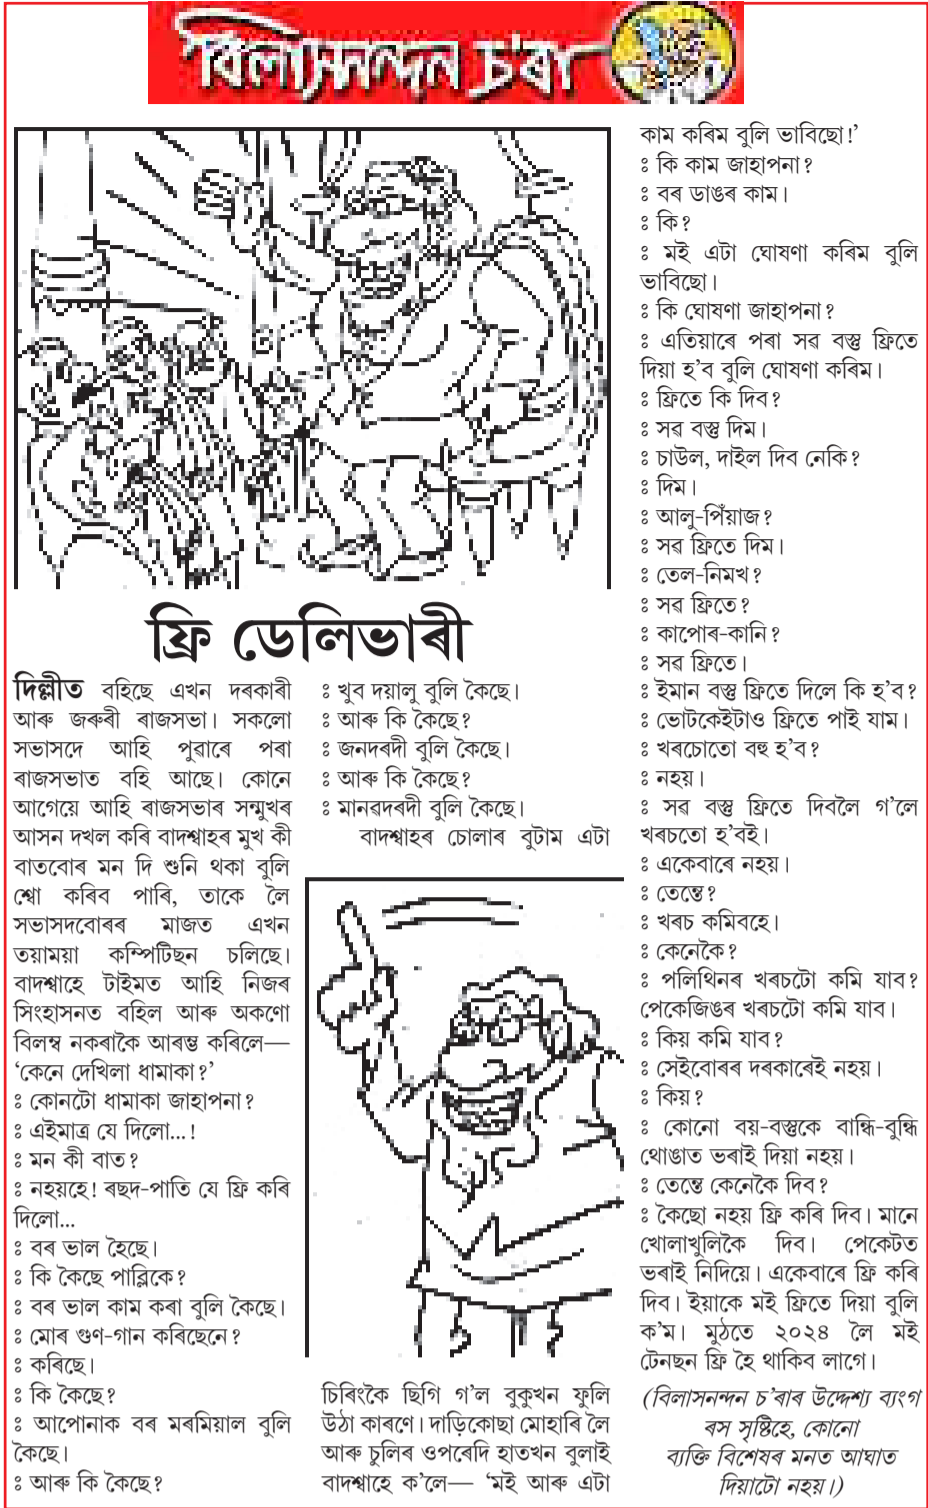 বিলাসনন্দন চ'ৰা
ফ্ৰি ডেলিভাৰী
দিল্লীত বহিছে এখন দৰকাৰী
আৰু জৰুৰী ৰাজসভা। সকলো
সভাসদে আহি পুৱাৰে পৰা
ৰাজসভাত বহি আছে। কোনে
আগেয়ে আহি ৰাজসভাৰ সন্মুখৰ
আসন দখল কৰি বাদশ্বাহৰ মুখ কী
বাতবোৰ মন দি শুনি থকা বুলি
শ্বো কৰিব পাৰি, তাকে লৈ
সভাসদবোৰৰ মাজত এখন
তয়াময়া কম্পিটিছন চলিছে।
বাদশ্বাহে টাইমত আহি নিজৰ
সিংহাসনত বহিল আৰু অকণো
বিলম্ব নকৰাকৈ আৰম্ভ কৰিলে—
‘কেনে দেখিলা ধামাকা?’
ঃ কোনটো ধামাকা জাহাপনা?
ঃ এইমাত্ৰ যে দিলো...!
ঃ মন কী বাত?
ঃ নহয়হে! ৰছদ-পাতি যে ফ্ৰি কৰি
দিলো...
ঃ বৰ ভাল হৈছে।
ঃ কি কৈছে পাব্লিকে?
ঃ বৰ ভাল কাম কৰা বুলি কৈছে।
ঃ মোৰ গুণ-গান কৰিছেনে?
ঃ কৰিছে।
ঃ কি কৈছে?
ঃ আপোনাক বৰ মৰমিয়াল বুলি
কৈছে।
ঃ আৰু কি কৈছে?
ঃ খুব দয়ালু বুলি কৈছে।
ঃ আৰু কি কৈছে?
ঃ জনদৰদী বুলি কৈছে।
ঃ আৰু কি কৈছে?
ঃ মানৱদৰদী বুলি কৈছে।
বাদশ্বাহৰ চোলাৰ বুটাম এটা
চিৰিংকৈ ছিগি গ'ল বুকুখন ফুলি
উঠা কাৰণে। দাড়িকোছা মোহাৰি লৈ
আৰু চুলিৰ ওপৰেদি হাতখন বুলাই
বাদশ্বাহে ক'লে— ‘মই আৰু এটা
কাম কৰিম বুলি ভাবিছো!’
ঃ কি কাম জাহাপনা?
ঃ বৰ ডাঙৰ কাম।
ঃ কি?
ঃ মই এটা ঘোষণা কৰিম বুলি
ভাবিছো।
ঃ কি ঘোষণা জাহাপনা?
ঃ এতিয়াৰে পৰা সৱ বস্তু ফ্ৰিতে
দিয়া হ'ব বুলি ঘোষণা কৰিম।
ঃ ফ্ৰিতে কি দিব?
ঃ সৱ বস্তু দিম।
ঃ চাউল, দাইল দিব নেকি?
ঃ দিম।
ঃ আলু-পিঁয়াজ?
ঃ সৱ ফ্ৰিতে দিম।
ঃ তেল-নিমখ?
ঃ সৱ ফ্ৰিতে?
ঃ কাপোৰ-কানি?
ঃ সৱ ফ্ৰিতে।
ঃ ইমান বস্তু ফ্ৰিতে দিলে কি হ'ব?
ঃ ভোটকেইটাও ফ্ৰিতে পাই যাম।
ঃ খৰচোতো বহু হ'ব?
ঃ নহয়।
ঃ সৱ বস্তু ফ্ৰিতে দিবলৈ গ'লে
খৰচতো হ'বই।
ঃ একেবাৰে নহয়।
ঃ তেন্তে?
ঃ খৰচ কমিবহে।
ঃ কেনেকৈ?
ঃ পলিথিনৰ খৰচটো কমি যাব?
পেকেজিঙৰ খৰচটো কমি যাব।
ঃ কিয় কমি যাব?
ঃ সেইবোৰৰ দৰকাৰেই নহয়।
ঃ কিয়?
ঃ কোনো বয়-বস্তুকে বান্ধি-বুন্ধি
থোঙাত ভৰাই দিয়া নহয়।
ঃ তেন্তে কেনেকৈ দিব?
ঃ কৈছো নহয় ফ্ৰি কৰি দিব। মানে
খোলাখুলিকৈ দিব। পেকেটত
ভৰাই নিদিয়ে। একেবাৰে ফ্ৰি কৰি
দিব। ইয়াকে মই ফ্ৰিতে দিয়া বুলি
ক'ম। মুঠতে ২০২৪ লৈ মই
টেনছন ফ্ৰি হৈ থাকিব লাগে।
(বিলাসনন্দন চ'ৰাৰ উদ্দেশ্য ব্যংগ
ৰস সৃষ্টিহে, কোনো
ব্যক্তি বিশেষৰ মনত আঘাত
দিয়াটো নহয়।)